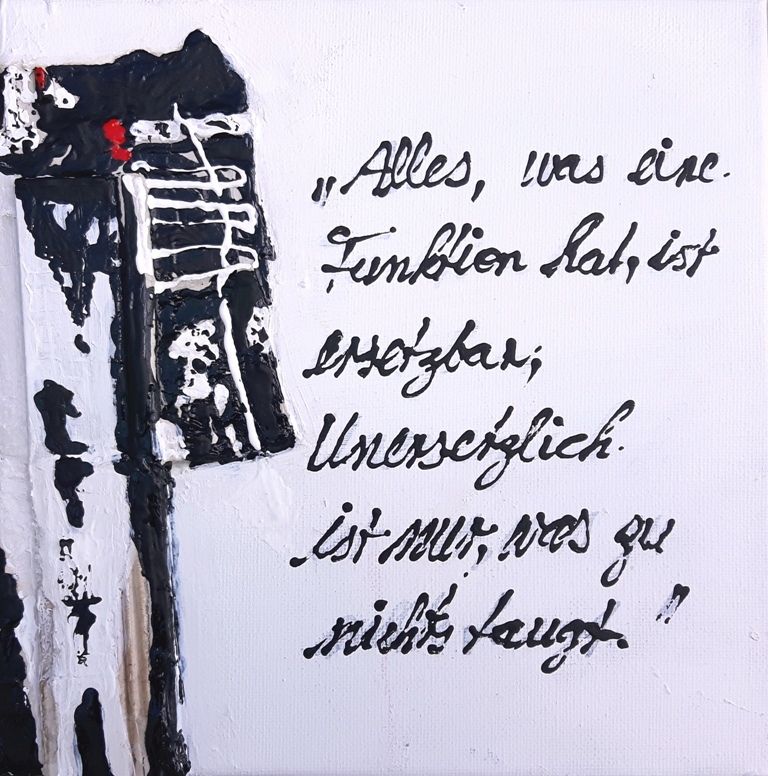 „Alles, was eine
Funktion hat, ist
ersetzbar;
Unersetzlich
ist nur, was zu
nichts taugt."